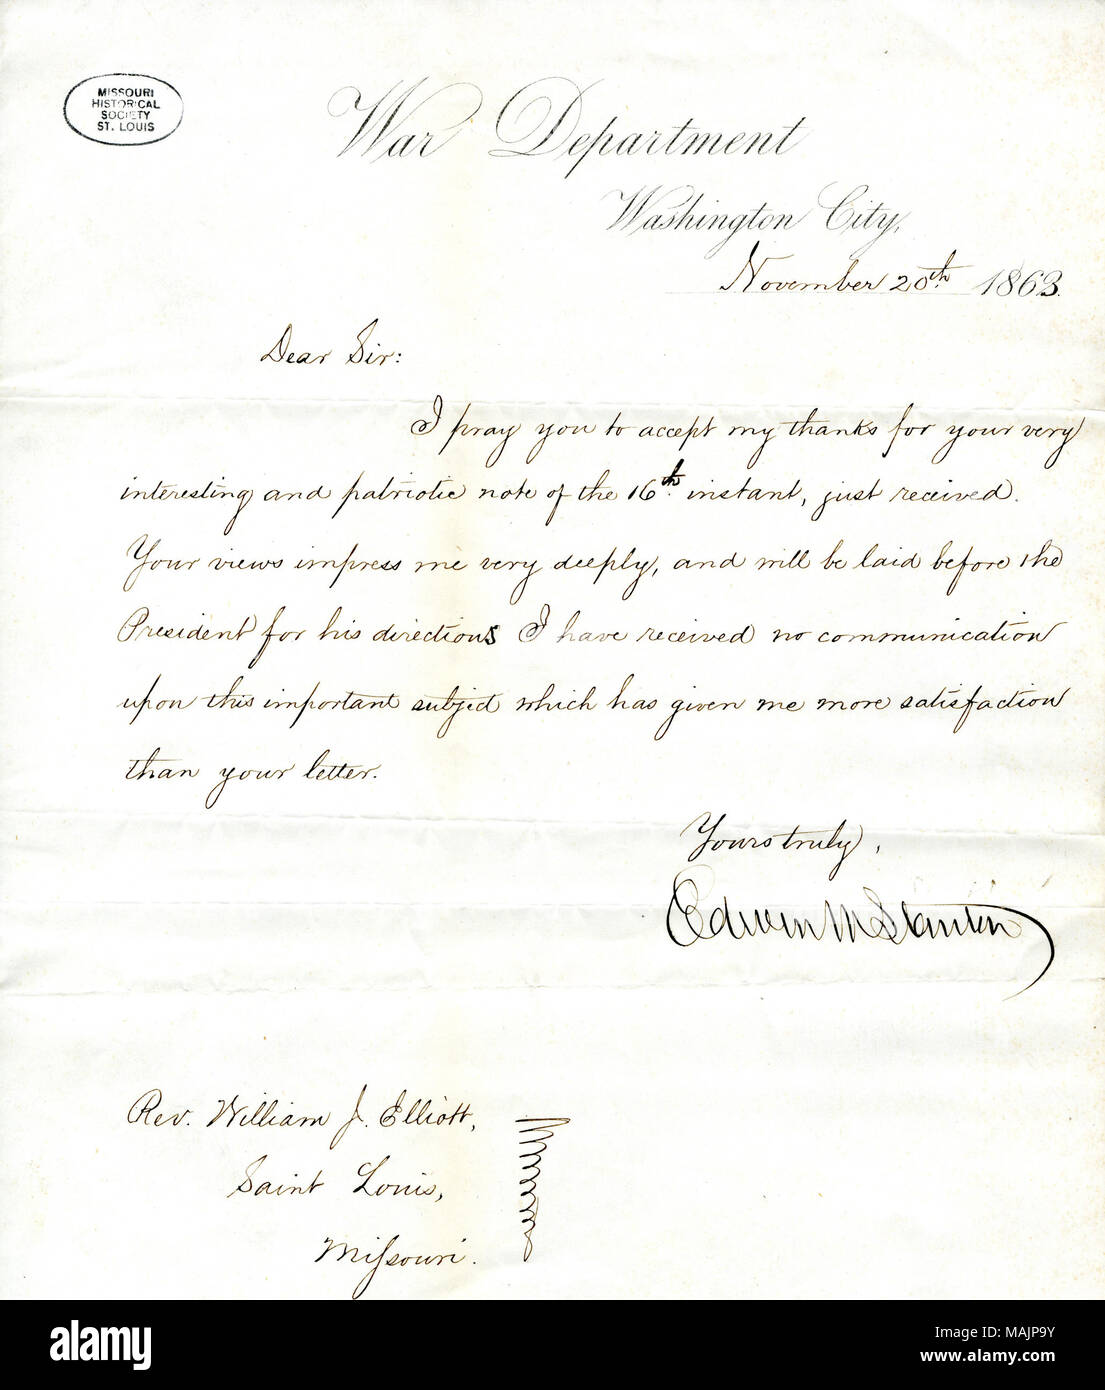 MISSOURI
HISTORICAL
SOCIETY
ST. LOUIS
War Department
Washington City,
November 20th 1863.
Dear Sir:
I pray you to accept my thanks for your very
interesting and patriotic note of the 16th instant, just received.
Your views impress me very deeply, and will be laid before the
President for his directions I have received no communication
upon this important subject which has given me more satisfaction
than your letter.
Yours truly,
Edwin M Stanton
Rev. William J. Elliott,
Saint Louis,
Missouri.
alamy
Image ID: MAJP9Y
www.alamy.com